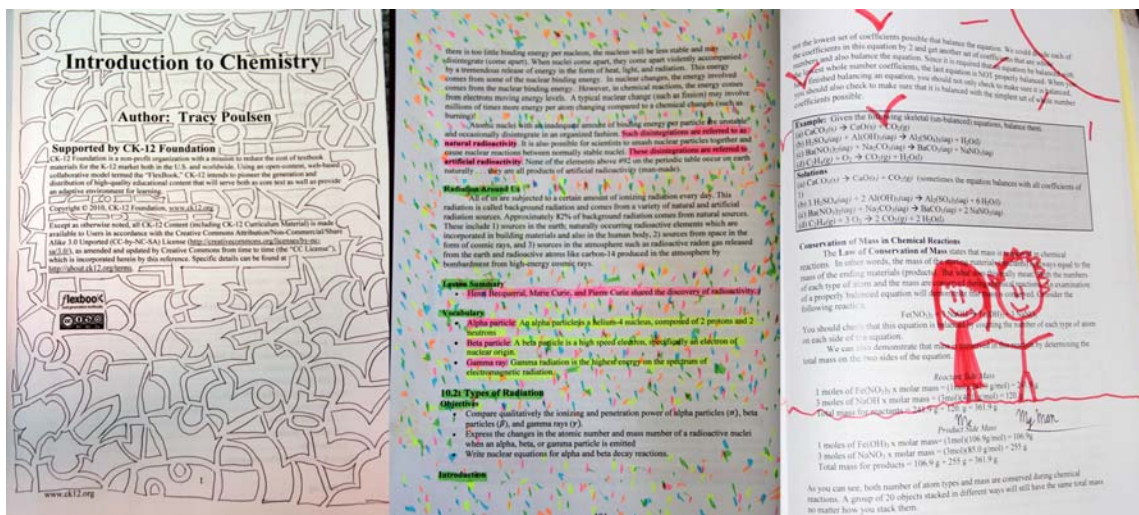 Introduction to Chemistry
Author: Tracy Poulsen
Supported by CK-12 Foundation
CK-12 Foundation is a non-profit organization with a mission to reduce the cost of textbook
materials for the K-12 market both in the U.S. and worldwide. Using an open-content, web-based
collaborative model termed the "FlexBook," CK-12 intends to pioneer the generation and
distribution of high-quality educational content that will serve both as core text as well as provide
an adaptive environment for learning.
Copyright © 2010, CK-12 Foundation, www.ck12.org
Except as otherwise noted, all CK-12 Content (including CK-12 Curriculum Material) is made
available to Users in accordance with the Creative Commons Attribution/Non-Commercial/Share
Alike 3.0 Unported (CC-by-NC-SA) License (http://creativecommons.org/licenses/by-nc-
sa/3.0/), as amended and updated by Creative Commons from time to time (the "CC License"),
which is incorporated herein by this reference. Specific details can be found at
http://about.ck12.org/terms.
flexbook
1
www.ck12.org
there is too little binding energy per nucleon, the nucleus will be less stable and may
disintegrate (come apart). When nuclei come apart, they come apart violently accompanied
by a tremendous release of energy in the form of heat, light, and radiation. This energy
comes from some of the nuclear binding energy. In nuclear changes, the energy involved
comes from the nuclear binding energy. However, in chemical reactions, the energy comes
from electrons moving energy levels. A typical nuclear change (such as fission) may involve
millions of times more energy per atom changing compared to a chemical changes (such as
burning)!
Atomic nuclei with an inadequate amount of binding energy per nucleon are unstable
and occasionally disintegrate in an organized fashion. Such disintegrations are referred to as
natural radioactivity. It is also possible for scientists to smash nuclear particles together and
cause nuclear reactions between normally stable nuclei. These disintegrations are referred to
artificial radioactivity. None of the elements above #92 on the periodic table occur on earth
naturally . . . they are all products of artificial radioactivity (man-made).
Radiation Around Us
All of us are subjected to a certain amount of ionizing radiation every day. This
radiation is called background radiation and comes from a variety of natural and artificial
radiation sources. Approximately 82% of background radiation comes from natural sources.
These include 1) sources in the earth; naturally occurring radioactive elements which are
incorporated in building materials and also in the human body, 2) sources from space in the
form of cosmic rays, and 3) sources in the atmosphere such as radioactive radon gas released
from the earth and radioactive atoms like carbon-14 produced in the atmosphere by
bombardment from high-energy cosmic rays.
Lesson Summary
• Henri Becquerel, Marie Curie, and Pierre Curie shared the discovery of radioactivity.
Vocabulary
• Alpha particle: An alpha particle is a helium-4 nucleus, composed of 2 protons and 2
neutrons
• Beta particle: A beta particle is a high speed electron, specifically an electron of
nuclear origin.
• Gamma ray: Gamma radiation is the highest energy on the spectrum of
electromagnetic radiation.
10.2: Types of Radiation
Objectives
• Compare qualitatively the ionizing and penetration power of alpha particles (α), beta
particles (β), and gamma rays (γ).
• Express the changes in the atomic number and mass number of a radioactive nuclei
when an alpha, beta, or gamma particle is emitted
• Write nuclear equations for alpha and beta decay reactions.
Introduction
not the lowest set of coefficients possible that balance the equation. We could divide each of
the coefficients in this equation by 2 and get another set of coefficients that are whole
numbers and also balance the equation. Since it is required that an equation be balanced with
the lowest whole number coefficients, the last equation is NOT properly balanced. When you
have finished balancing an equation, you should not only check to make sure it is balanced,
you should also check to make sure that it is balanced with the simplest set of whole number
coefficients possible.
Example: Given the following skeletal (un-balanced) equations, balance them.
(a) CaCO₃(s) → CaO(s) + CO₂(g)
(b) H₂SO₄(aq) + Al(OH)₃(aq) → Al₂(SO₄)₃(aq) + H₂O(l)
(c) Ba(NO₃)₂(aq) + Na₂CO₃(aq) → BaCO₃(aq) + NaNO₃(aq)
(d) C₂H₄(g) + O₂ → CO₂(g) + H₂O(l)
Solutions
(a) CaCO₃(s) → CaO(s) + CO₂(g) (sometimes the equation balances with all coefficients of
1)
(b) 3 H₂SO₄(aq) + 2 Al(OH)₃(aq) → Al₂(SO₄)₃(aq) + 6 H₂O(l)
(c) Ba(NO₃)₂(aq) + Na₂CO₃(aq) → BaCO₃(aq) + 2 NaNO₃(aq)
(d) C₂H₄(g) + 3 O₂ → 2 CO₂(g) + 2 H₂O(l)
Conservation of Mass in Chemical Reactions
The Law of Conservation of Mass states that mass is conserved in chemical
reactions. In other words, the mass of the starting materials is always equal to the
mass of the ending materials (products). The numbers
of each type of atom and the mass are examination
of a properly balanced equation will Consider the
following reaction.
Fe(NO₃)₃
You should check that this equation is balanced by counting the number of each type of atom
on each side of the equation.
We can also demonstrate that mass is by determining the
total mass on the two sides of the equation.
Reactant Side Mass
1 moles of Fe(NO₃)₃ x molar mass = g/mol)
3 moles of NaOH x molar mass = g/mol) = 120. g
Total mass for reactants = 241.9 g + 120. g = 361.9 g
Me My man
Product Side Mass
1 moles of Fe(OH)₃ x molar mass= (1mol)(106.9g/mol) = 106.9g
3 moles of NaNO₃ x molar mass= (3mol)(85.0 g/mol) = 255 g
Total mass for products = 106.9 g + 255 g = 361.9 g
As you can see, both number of atom types and mass are conserved during chemical
reactions. A group of 20 objects stacked in different ways will still have the same total mass
no matter how you stack them.